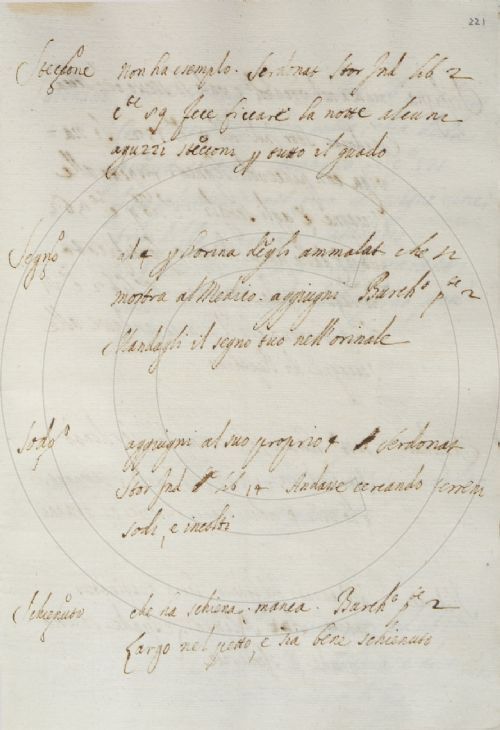 221
Steccone non ha esempio. Serdonat Stor Ind lib 2
c.te 89 fece ficcare la notte alcuni
aguzzi stecconi p tutto il guado
Segno al 4 p l'orina degli ammalat che si
mostra al Medico. aggiugni Burch.o p.te 2
Mandagli il segno tuo nell'orinale
Sodo aggiugni al suo proprio 4 Serdonat
Stor Ind lib 14 Andave cercando terreni
sodi, e incolti
Schienuto che ha schiena. manca. Burch.o p.te 2
Largo nel petto, e ha bene schienuto